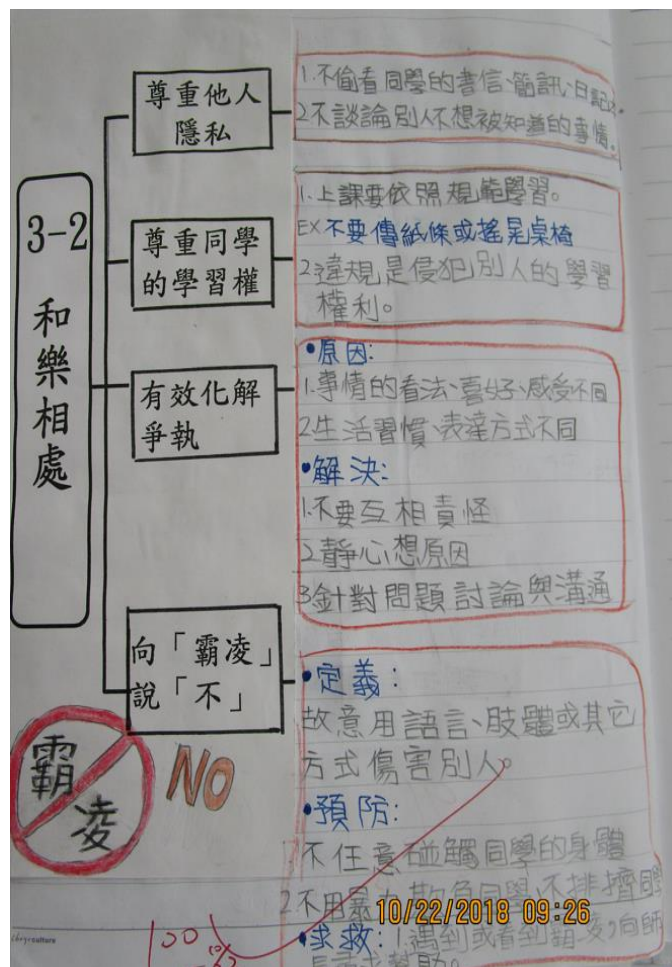 3-2
和樂相處
尊重他人
隱私
1.不偷看同學的書信、簡訊、日記
2不談論別人不想被知道的事情。
尊重同學
的學習權
1.上課要依照規範學習。
EX不要傳紙條或搖晃桌椅
2違規是侵犯別人的學習
權利。
有效化解
爭執
•原因:
1.事情的看法、喜好、感受不同
2生活習慣、表達方式不同
•解決:
1.不要互相責怪
2靜心想原因
3針對問題討論與溝通
向「霸凌」
說「不」
•定義:
故意用語言、肢體或其它
方式傷害別人。
•預防:
不任意碰觸同學的身體
2不用暴力欺負同學、不排擠同學
•求救:1遇到或看到霸凌,向師
長尋求幫助。
霸
凌
NO
100
10/22/2018 09:26